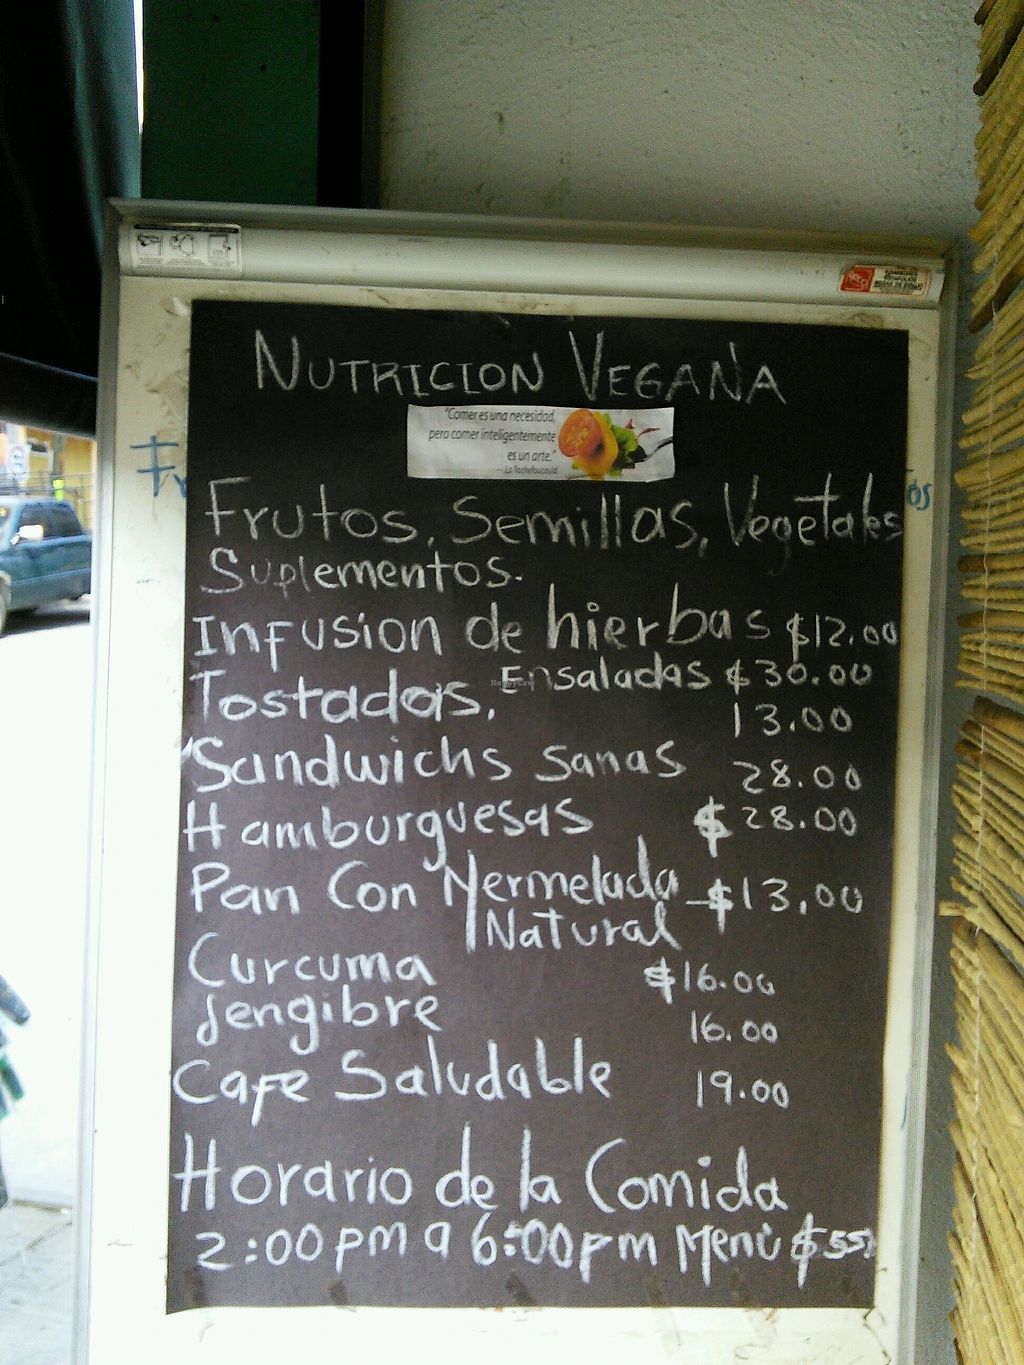 NUTRICION VEGANA
"Comer es una necesidad,
pero comer inteligentemente
es un arte."
La Rochefoucauld
Frutos, Semillas, Vegetales
Suplementos.
Infusion de hierbas $12.00
Ensaladas $30.00
Tostadas. 13.00
Sandwichs sanas 28.00
Hamburguesas $28.00
Pan Con Mermelada $13.00
Natural
Curcuma $16.00
Jengibre 16.00
Cafe Saludable 19.00
Horario de la Comida
2:00pm a 6:00pm Menú $55
HappyCow